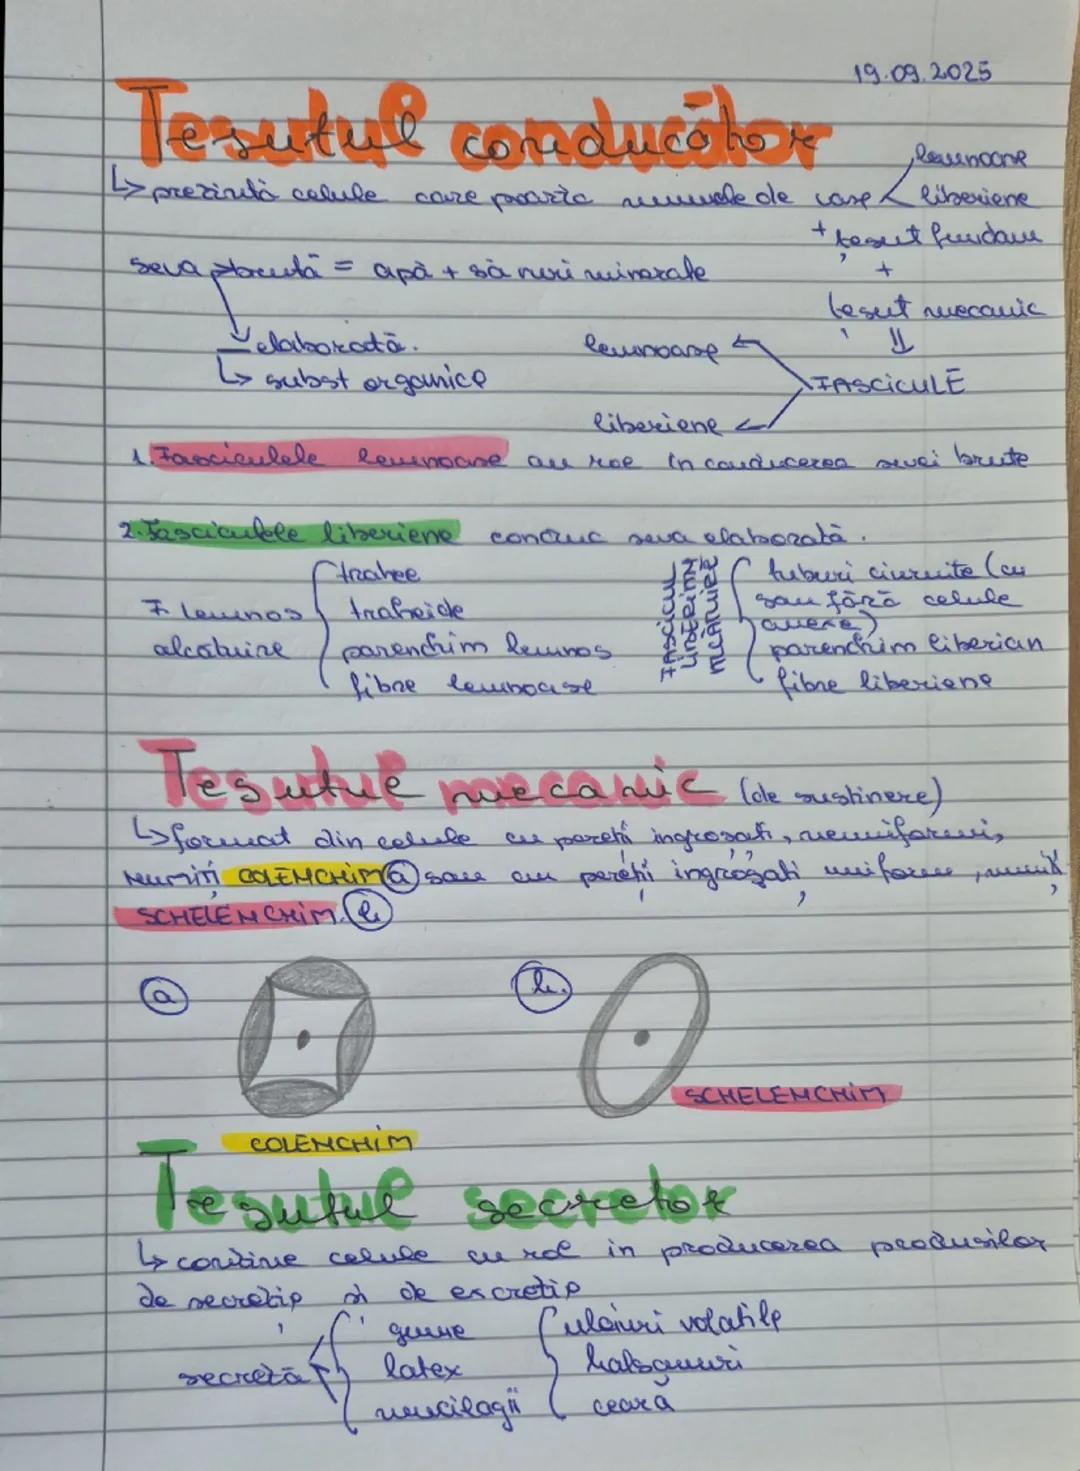 19.09.2025
Tesutul conducător
↳ prezintă celule care poartă numele de vase < lemnoase
liberiene
+ țesut fundam
+
seva brută = apă + săruri minerale
țesut mecanic
⇓
→ elaborată.
↳ subst organice
lemnoase ←
FASCICULE
liberiene ←
1. Fasciculele lemnoase au rol în conducerea sevei brute
2. Fasciculele liberiene conduc seva elaborată.
F lemnos alcătuire { trahee
traheide
parenchim lemnos
fibre lemnoase
FASCICUL LIBERIAN { tuburi ciuruite (cu
sau fără celule
anexe)
parenchim liberian
fibre liberiene
Tesutul mecanic (de sustinere)
↳ format din celule cu pereți îngroșați, neuniformi,
numiți COLENCHIM (a) sau cu pereții îngroșați uniform, numit
SCHELEMCHIM. (b)
(a)
(b.)
SCHELEMCHIM
COLENCHIM
Tesutul secretor
↳ contine celule cu rol in producerea produsilor
de secretie și de excretie
secretă { gume
latex
mucilagii
{ uleiuri volatile
balsamuri
ceară